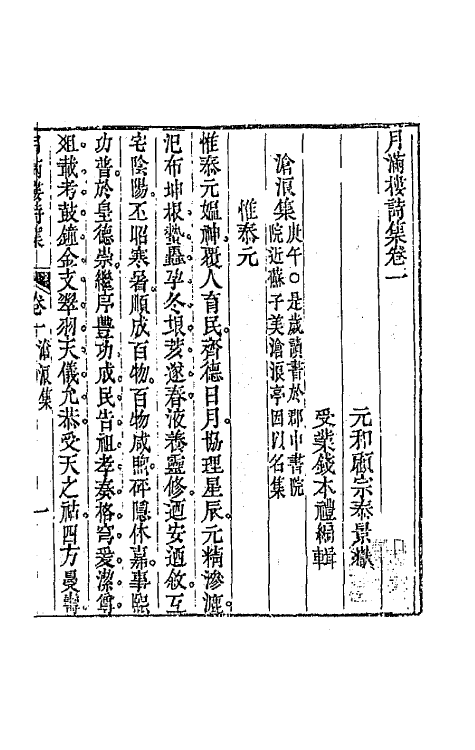 月滿樓詩集卷一
元和顧宗泰景嶽
受業錢本禮編輯
滄浪集庚午○是歲讀書於郡中書院
院近蘇子美滄浪亭因以名集
惟泰元
惟泰元媪神覆人育民齊德日月協理星辰元精滲漉
汜布坤根蟄蟲孕冬垠荄邃春液養靈修迺安迺敘互
宅陰陽丕昭寒暑順成百物百物咸煦砰隱休嘉事熙
功普於皇德崇繼序豐功成民告祖孝奏格穹爰潔尊
俎載考鼓鐘金支翠羽天儀允恭受天之祜四方曼壽
月滿樓詩集 卷一滄浪集 一